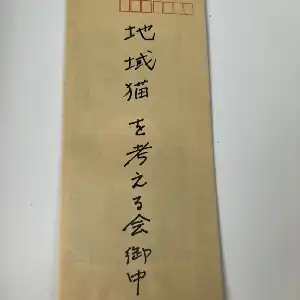 地域猫を考える会御中